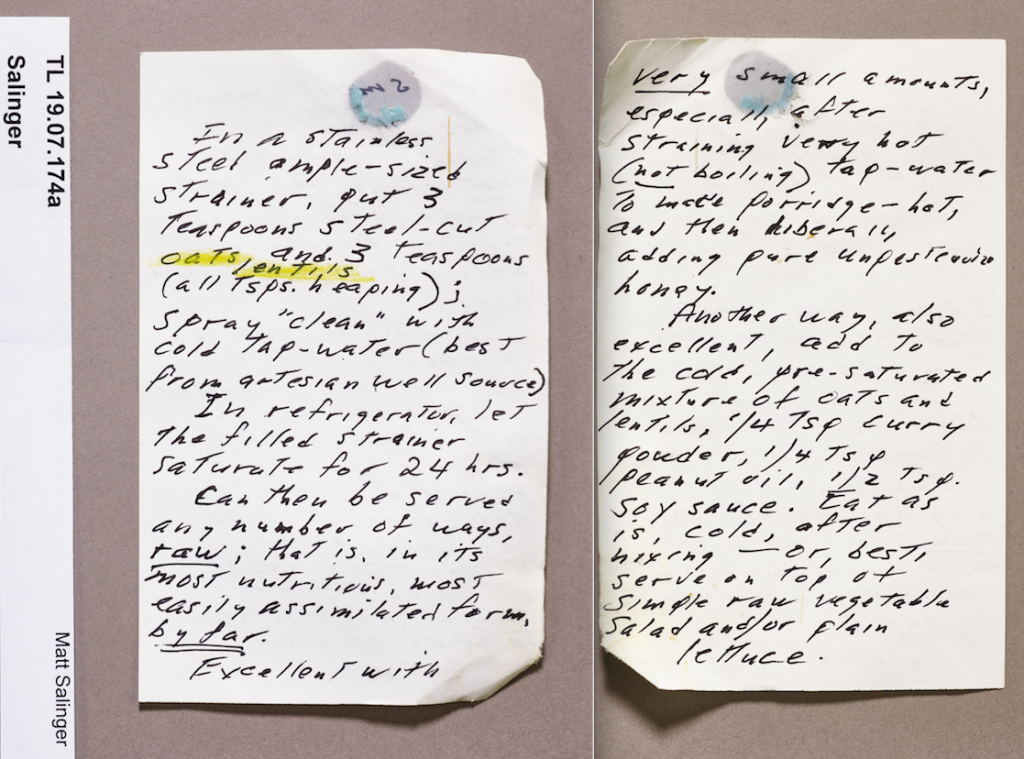 TL 19.07.174a
Salinger
Matt Salinger
In a stainless
steel ample-sized
strainer, put 3
Teaspoons steel-cut
oats, and 3 Teaspoons
lentils
(all Tsps. heaping);
spray "clean" with
cold tap-water (best
from artesian well source)
In refrigerator, let
the filled strainer
saturate for 24 hrs.
Can then be served
any number of ways,
raw; that is, in its
most nutritious, most
easily assimilated form,
by far.
Excellent with
very small amounts,
especially after
straining very hot
(not boiling) tap-water
To make porridge-hot,
and then liberally
adding pure
honey.
Another way, also
excellent, add to
the cold, pre-saturated
mixture of oats and
lentils, 1/4 Tsp curry
powder, 1/4 Tsp
peanut oil, 1/2 Tsp.
soy sauce. Eat as
is, cold, after
mixing — or, best,
serve on top of
simple raw vegetable
salad and/or plain
lettuce.